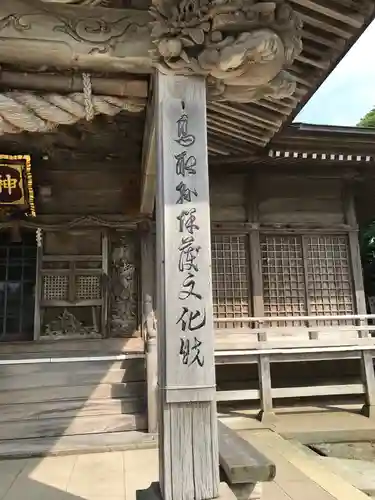 鳥取縣保護文化財
神